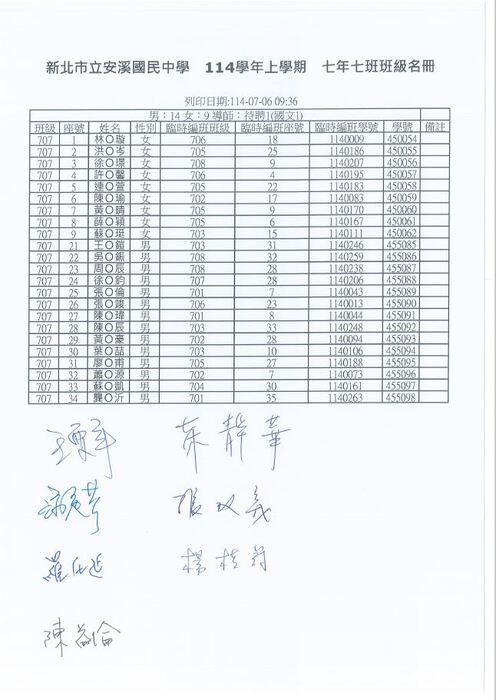 新北市立安溪國民中學 114學年上學期 七年七班班級名冊
列印日期:114-07-06 09:36
男：14 女：9 導師：待聘1(國文1)
班級 座號 姓名 性別 臨時編班班級 臨時編班座號 臨時編班學號 學號 備註
707 1 林O璇 女 706 18 1140009 450054
707 2 洪O岑 女 705 25 1140186 450055
707 3 徐O璟 女 708 9 1140207 450056
707 4 許O馨 女 706 4 1140195 450057
707 5 連O萱 女 705 22 1140183 450058
707 6 陳O瑜 女 702 17 1140083 450059
707 7 黃O晴 女 705 9 1140170 450060
707 8 薛O穎 女 705 6 1140167 450061
707 9 蘇O珽 女 703 15 1140111 450062
707 21 王O鎧 男 703 31 1140246 455085
707 22 吳O鋠 男 708 32 1140259 455086
707 23 周O辰 男 708 28 1140238 455087
707 24 徐O鈞 男 707 28 1140206 455088
707 25 張O倫 男 701 7 1140043 455089
707 26 張O竣 男 706 23 1140013 455090
707 27 陳O瑋 男 701 8 1140044 455091
707 28 陳O辰 男 703 33 1140248 455092
707 29 黃O豪 男 702 28 1140094 455093
707 30 葉O喆 男 703 10 1140106 455094
707 31 廖O甫 男 705 27 1140188 455095
707 32 蕭O源 男 702 7 1140073 455096
707 33 蘇O凱 男 704 30 1140161 455097
707 34 龔O沂 男 701 35 1140263 455098
靜華
張义義
楊桂
羅
陳益倫